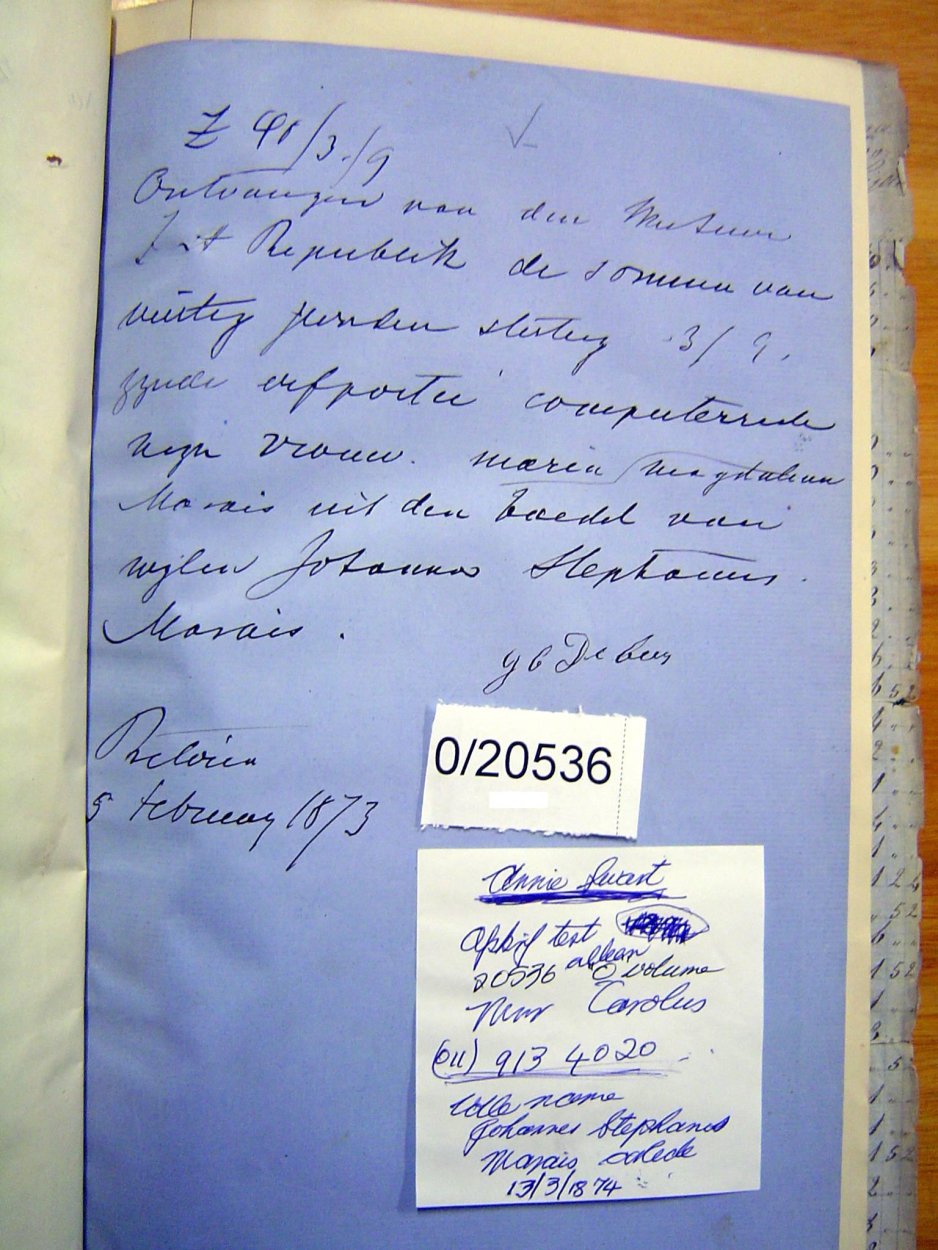 £ 40/3/9
Ontvangen van den Meester
Republiek de somma van
viertig ponden sterling 3/9.
zynde erfportie computerende
myn vrouw. Maria Magdalena
Marais uit den boedel van
wylen Johannes Stephanus
Marais.
De Beer
Pretoria
5 February 1873
0/20536
Annie Swart
Afskrif test
alleen
20536 "O" volume
Mnr Carolus
(011) 913 4020
Volle name
Johannes Stephanus
Marais oorlede
13/3/1874